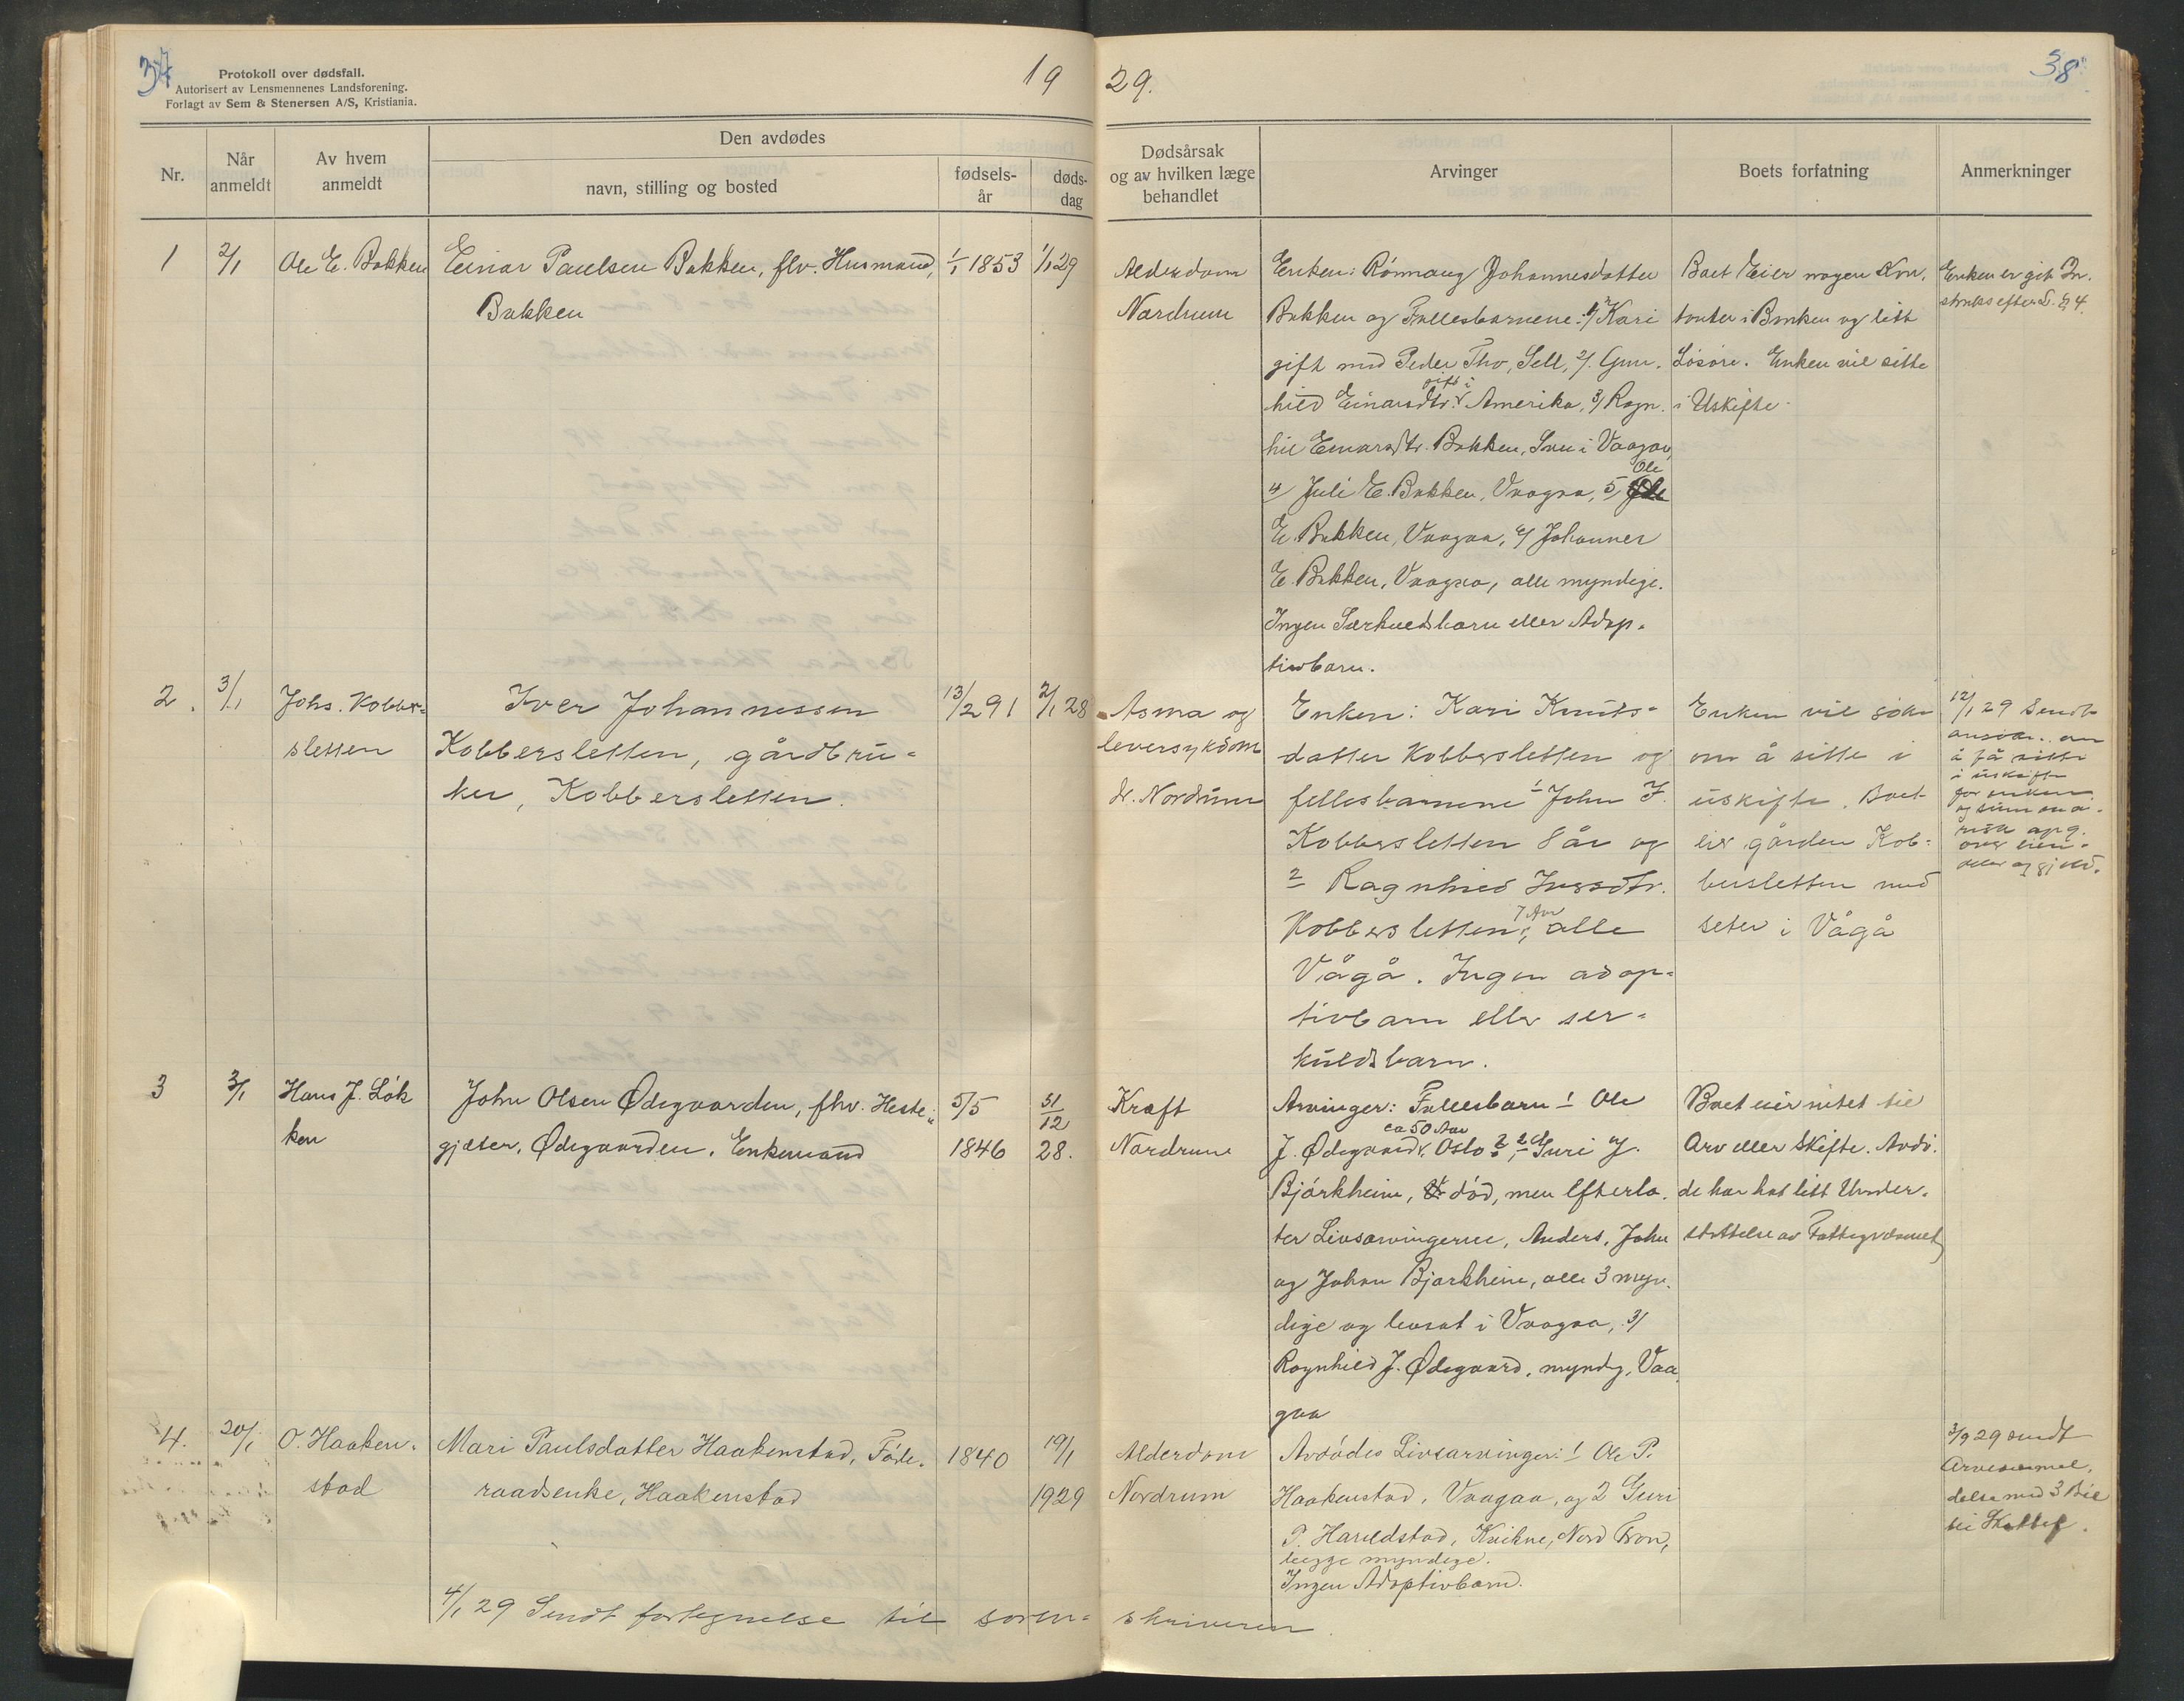 37
Protokoll over dødsfall.
Autorisert av Lensmennenes Landsforening.
Forlagt av Sem & Stenersen A/S, Kristiania.
19 29.
38
Nr.
Når anmeldt
Av hvem anmeldt
Den avdødes
navn, stilling og bosted
fødsels-år
døds-dag
Dødsårsak og av hvilken læge behandlet
Arvinger
Boets forfatning
Anmerkninger
1
2/1
Ole E. Bakken
Einar Paulsen Bakken, flv. Husmand,
Bakken
1/1 1853
1/1 29
Alderdom
Nordrum
Enken: Rønnaug Johannesdatter
Bakken og Fællesbarnene: 1/ Kari
gift med Peder Tho, Sell, 2/ Gun-
hild Einarsdtr. gift i Amerika, 3/ Ragn-
hil Einarsdtr. Bakken, Sve i Vaagaa,
4/ Juli E. Bakken, Vaagaa, 5 Ole
E. Bakken, Vaagaa, 6/ Johannes
E. Bakken, Vaagaa, alle myndige.
Ingen Særkuldsbarn eller Adop-
tivbarn.
Boet Eier nogen Kon-
tanter i Banken og litt
Løsøre. Enken vil sitte
i Uskifte.
Enken er git In-
struks efter L. § 4.
2.
3/1
Johs. Kobber-
sletten
Iver Johannessen
Kobbersletten, gårdbru-
ker, Kobbersletten.
13/2 91
2/1 28
Asma og
leversykdom
dr. Nordrum
Enken: Kari Knuts-
datter Kobbersletten og
fellesbarnene 1 John I.
Kobbersletten 8 år og
2 Ragnhild Iversdtr.
Kobbersletten, 7 Aar, alle
Vågå. Ingen adop-
tivbarn eller ser-
kuldsbarn.
Enken vil søke
om å sitte i
uskifte. Boet
eier gården Kob-
bersletten med
seter i Vågå
12/1 29 Sendt
ansøk. om
å få sitte
i uskifte
for enken
og summa-
risk opg.
over eien-
deler og gjeld.
3
3/1
Hans J. Løk
ken
John Olsen Ødegaarden, fhv. Heste-
gjæter, Ødegaarden. Enkemand
5/5
1846
31/12
28.
Kræft
Nordrum
Arvinger: Fællesbarn 1 Ole
J. Ødegaard, ca 50 Aar Oslo ?, 2 Guri J.
Bjørkheim, død, men Efterla-
ter Livsarvingerne, Anders, John
og Johan Bjørkheim, alle 3 myn-
dige og bosat i Vaagaa, 3/
Ragnhild J. Ødegaard, myndig, Vaa
gaa
Boet eier intet til
Arv eller Skifte. Avdø-
de har hat litt Under-
støttelse av Fattigvæsenet
4.
20/1
O. Haaken-
stad
Mari Paulsdatter Haakenstad, Føde-
raadsenke, Haakenstad
1840
19/1
1929
Alderdom
Nordrum
Avdødes Livsarvinger: 1 Ole P.
Haakenstad, Vaagaa, og 2 Guri
P. Haraldstad, Kvikne, Nord Fron,
begge myndige.
Ingen Adoptivbarn.
3/9 29 sendt
Arveanmel-
delse med 3 Bil
til Skattef.
4/1 29 Sendt fortegnelse til soren-
skriveren.